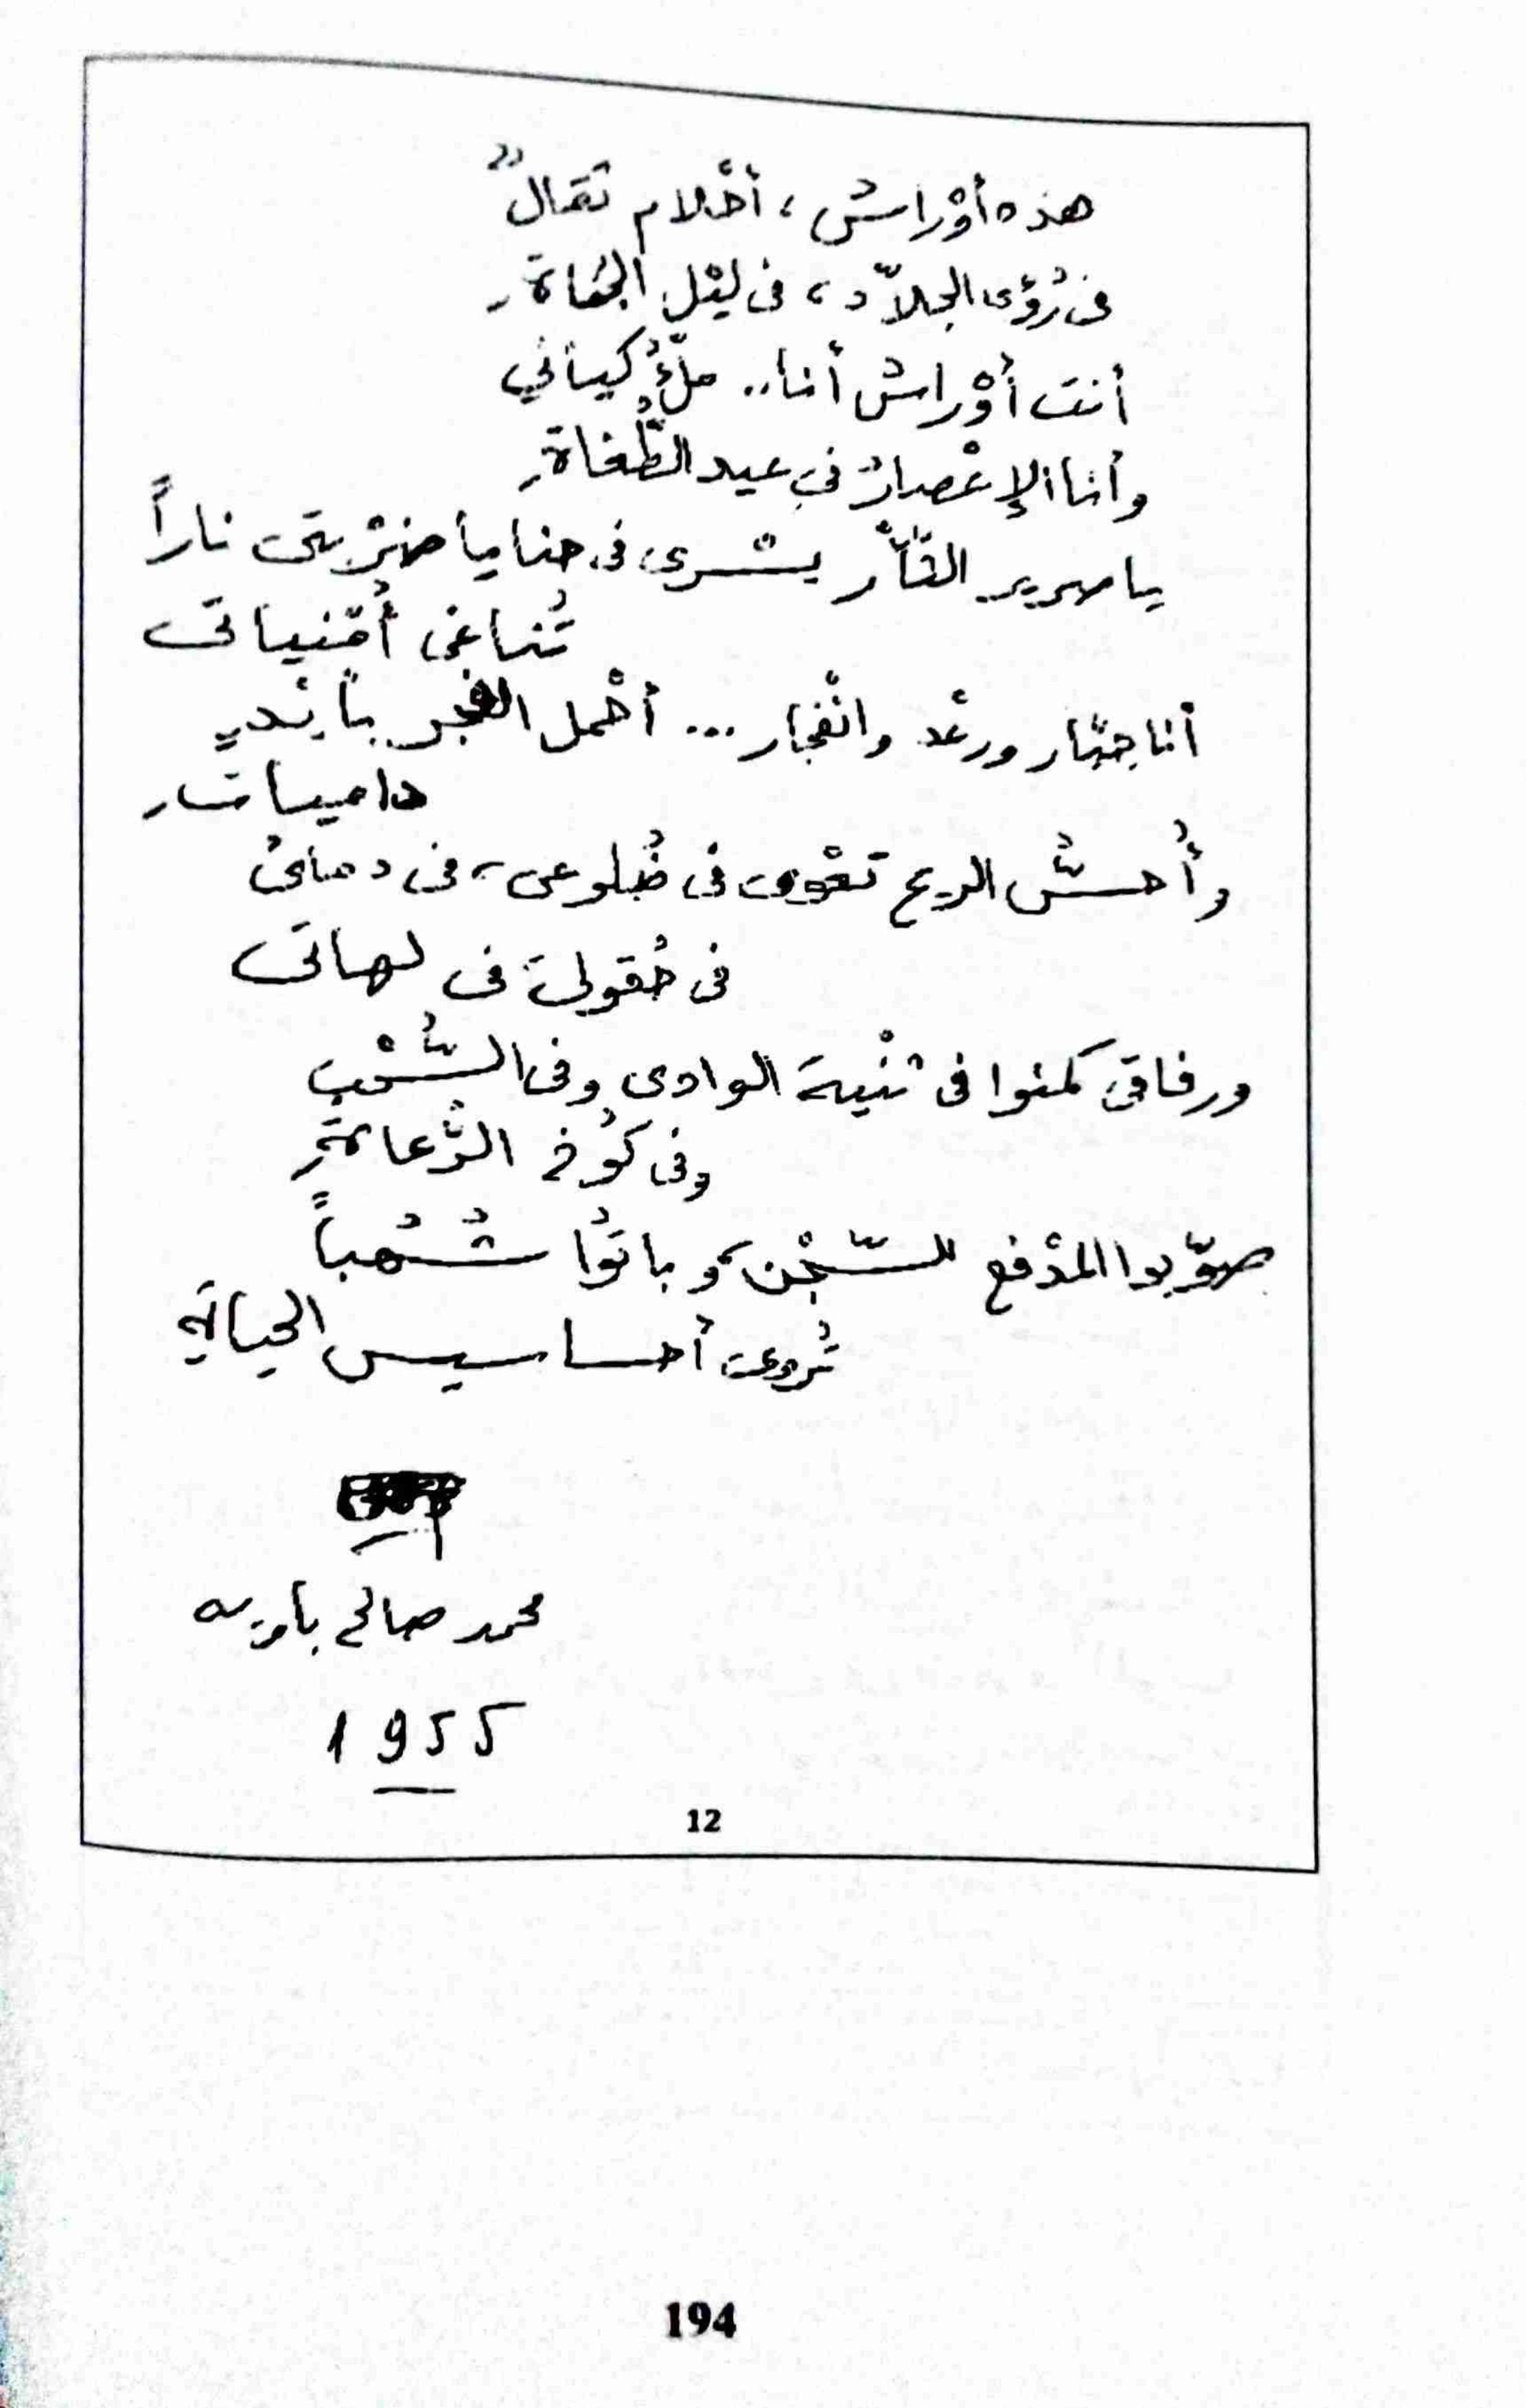 هذه أوْراسُ، أحْلام ثقالٌ
في رُؤى الجلاّد، في ليْل الجُفاةِ
أنت أوْراس أنا.. ملْءُ كياني
وأنا الإعْصارُ في عيد الطُّغاةِ
يا هدير الثّأر يسْرى في حنايا ضرْبتى ناراً
تُناغى أُمْنياتى
أنا جبّار ورعْد وانْفجار... أحْمل الفجر بأيْدٍ
داميات
وأُحسُّ الريح تعْوى في ضُلوعى، في دمائى
في حُقولى في لهاتى
ورفاقى كمنوا في ثنْية الوادى وفي السُّحْب
وفي كُوخ الرُّعاةِ
صوّبوا المدْفع للسّجْن، وباتوُا شُهُباً
تُروى أحاسيس الحياةِ
محمد صالح باويه
1955
12
194